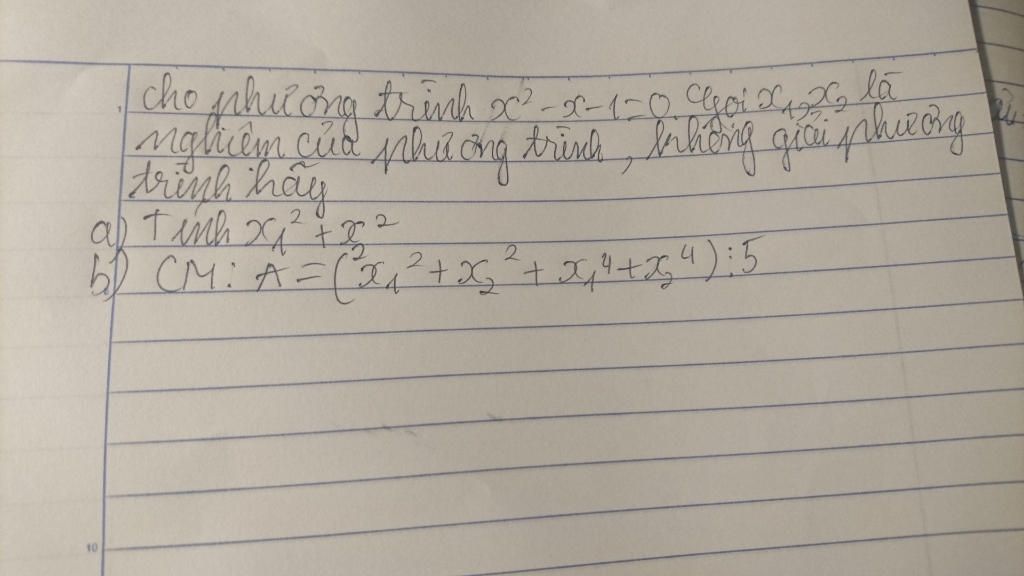 cho phương trình x² - x - 1 = 0. Gọi x₁, x₂ là
nghiệm của phương trình, không giải phương
trình hãy
a) Tính x₁² + x₂²
b) CM: A = (x₁² + x₂² + x₁⁴ + x₂⁴) ⋮ 5
10